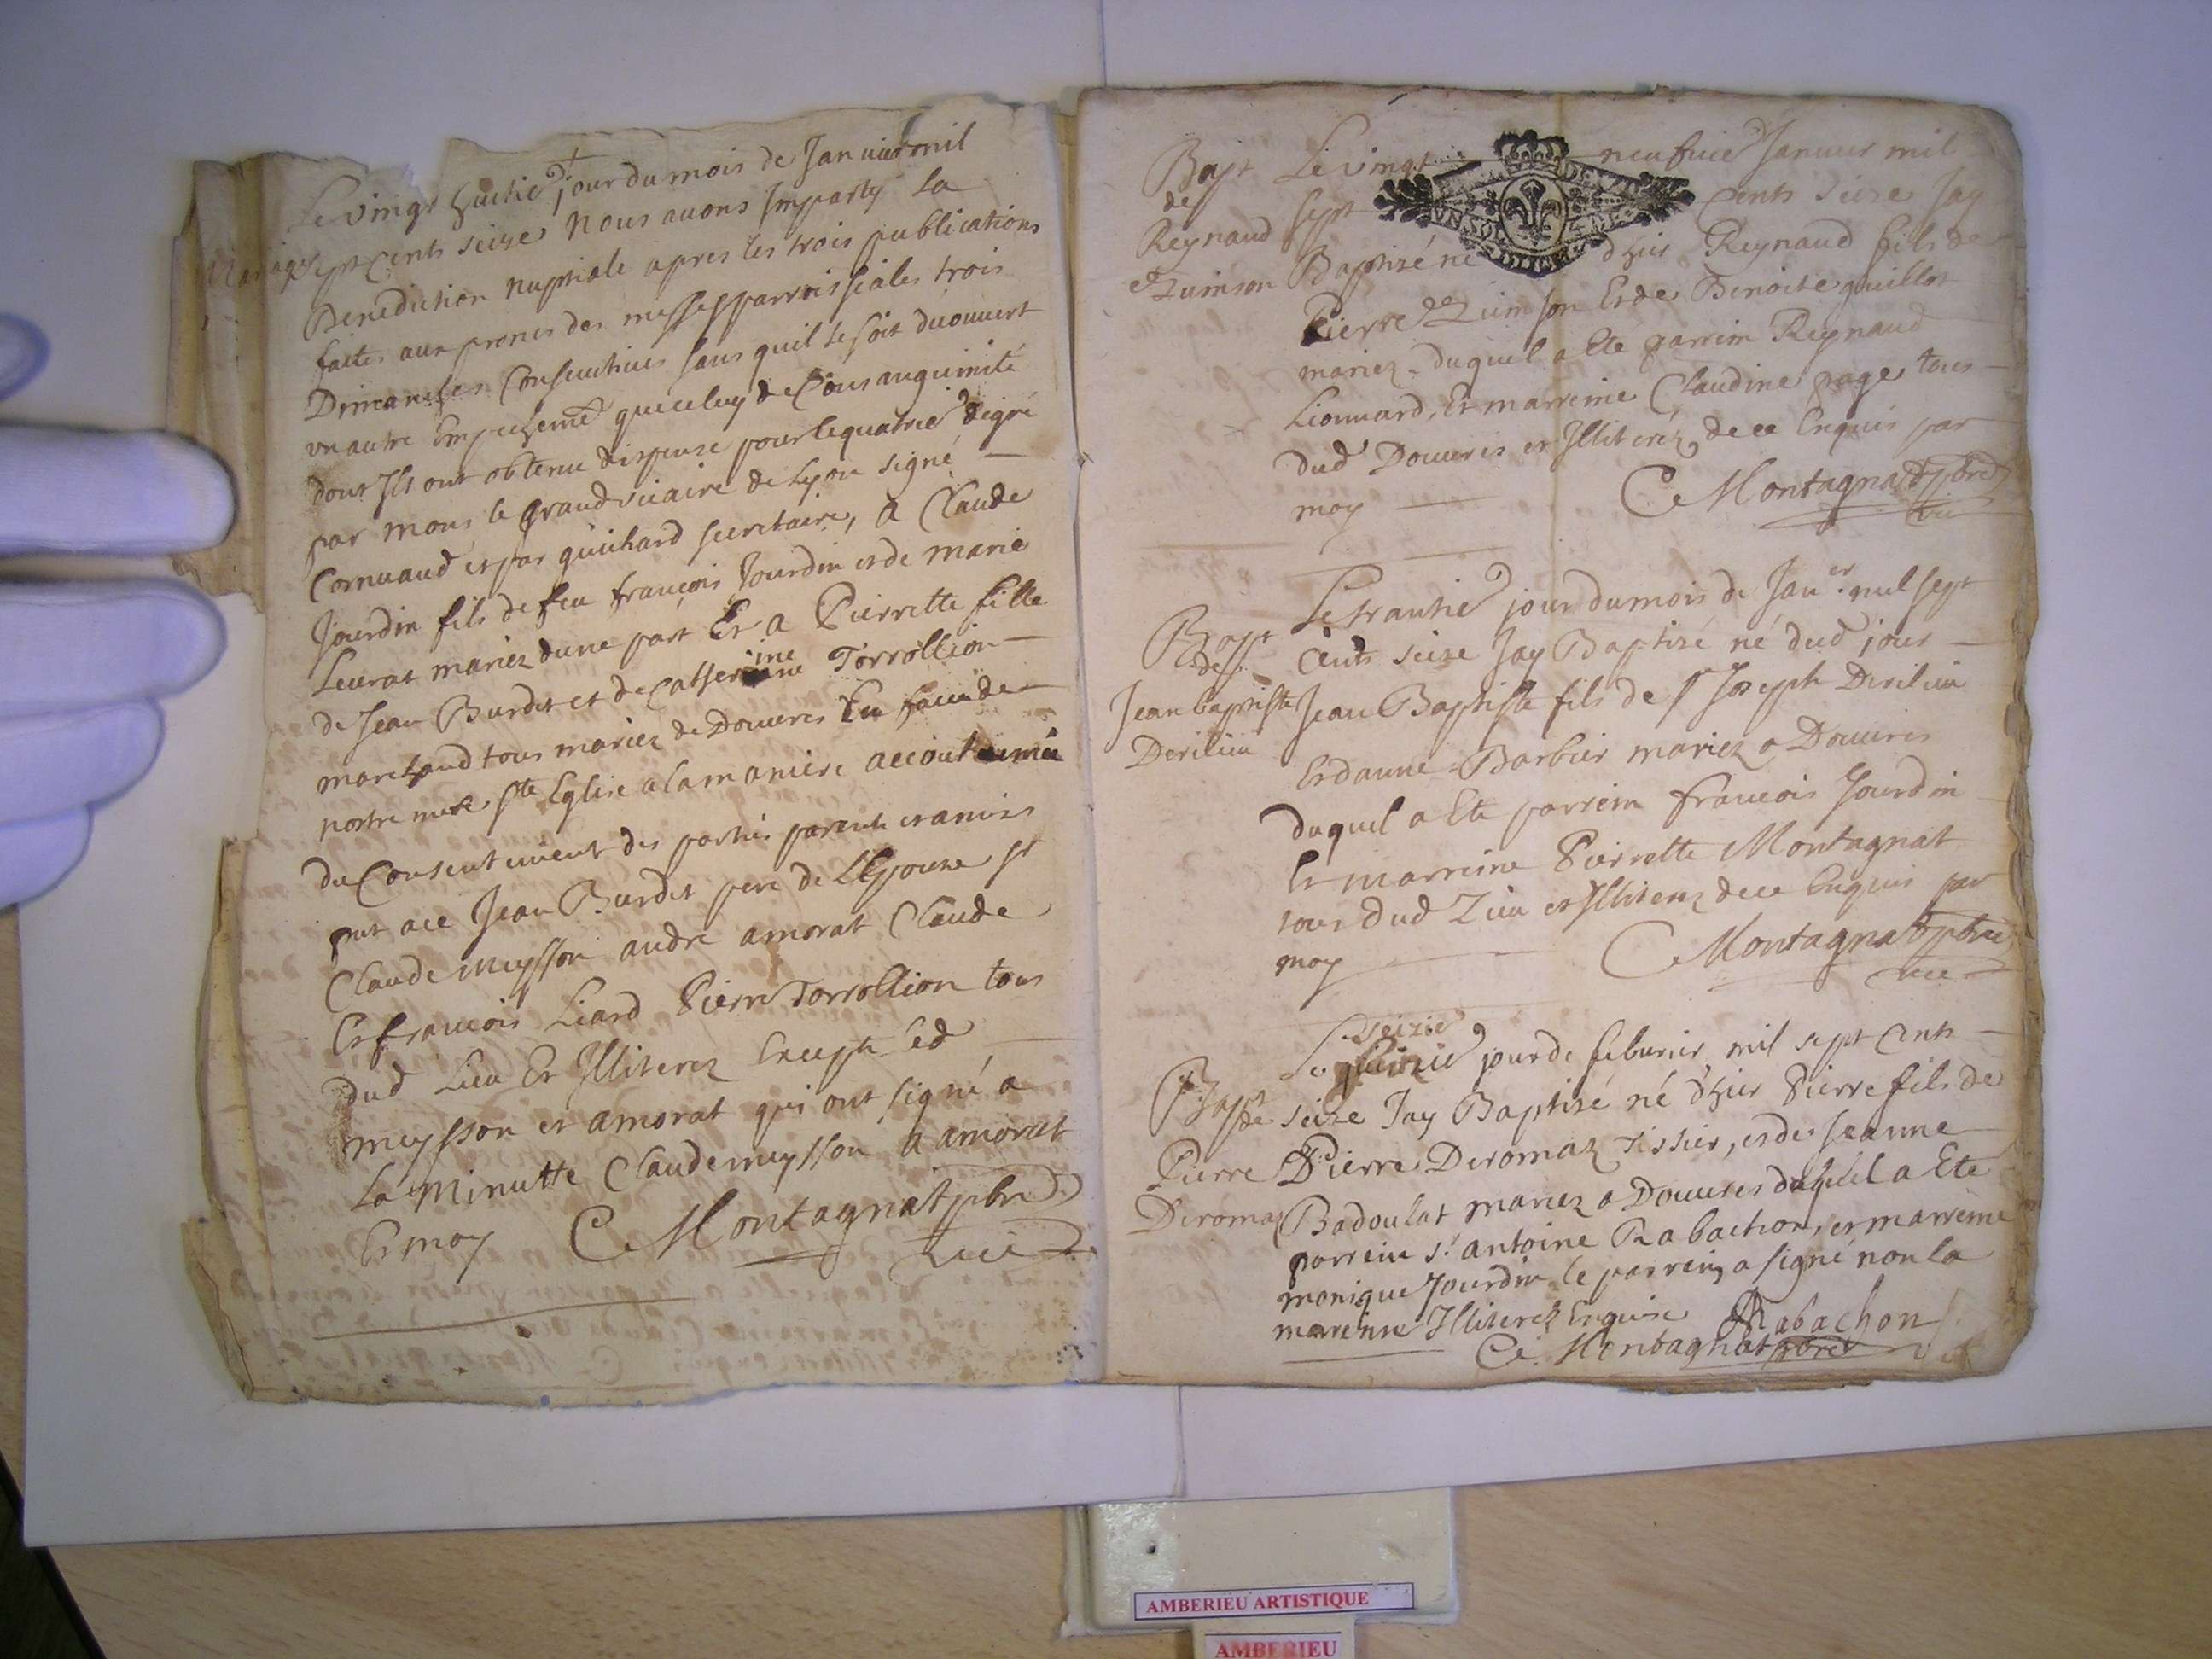 Le vingt huitie jour du mois de Januier mil
Mariage sept cents seize Nous auons Imparty La
Benediction nuptiale apres les trois publications
faites aux prones des messes parroissiales trois
Dimanches Consecutiues sans quil se soit decouuert
vn autre Empechemt que celuy de Consanguinité
dont Ils ont obtenu dispense pour le quatrie degré
par mons le grand vicaire de Lyon signé
Cornuaud et par guichard secretaire, a Claude
Jourdin fils de feu françois Jourdin et de marie
Leurat mariez dune part Et a Pierrette fille
de Jean Burdet et de Catherine Torrollion
marchand tous mariez de Douures En face de
nostre mere ste Eglise a la maniere accoutumée
du Consentement des parties parents et amis
pnt a ce Jean Burdet pere de LEpouse st
Claude meysson andre amorat Claude
Et francois Liard Pierre Torrollion tous
dud Lieu Et Illiterez Except led
meysson et amorat qui ont signé a
La minutte Claude meysson A amorat
Et moy C Montagnat pbre
vic
Bapt
de
Reynaud
Quinson
Le vingt neufuie Januier mil
sept Cents seize Jay
Baptizé né dhier Reynaud fils de
Pierre Quinson Et de Benoite guillot
mariez. duquel a Ete parrein Reynaud
Lionnard, Et marreine Claudine page tous
dud Douures et Illiterez de ce Enquis par
moy C Montagnat pbre
vic
Bapt
de
Jean baptiste
Derilieu
Le trantie jour du mois de Janer mil sept
Cents seize Jay Baptizé né dud jour
Jean Baptiste fils de sr Joseph Derilieu
Et danne Barbier mariez a Douures
duquel a Ete parrein francois Jourdin
Et marreine Pierrette Montagnat
tous dud Lieu et Illiterez de ce Enquis par
moy C Montagnat pbre
vic
Bapt
de
Pierre
Deromaz
seizie
Le jour de feburier mil sept Cents
seize Jay Baptizé né dhier Pierre fils de
Pierre Deromaz tissier, et de Jeanne
Badoulat mariez a Douures duquel a Ete
parrein sr antoine Rabachon, et marreine
monique Jourdin le parrein a signé non la
marreine Illiterez Enquise Rabachon
C Montagnat pbre
AMBERIEU ARTISTIQUE
AMBERIEU